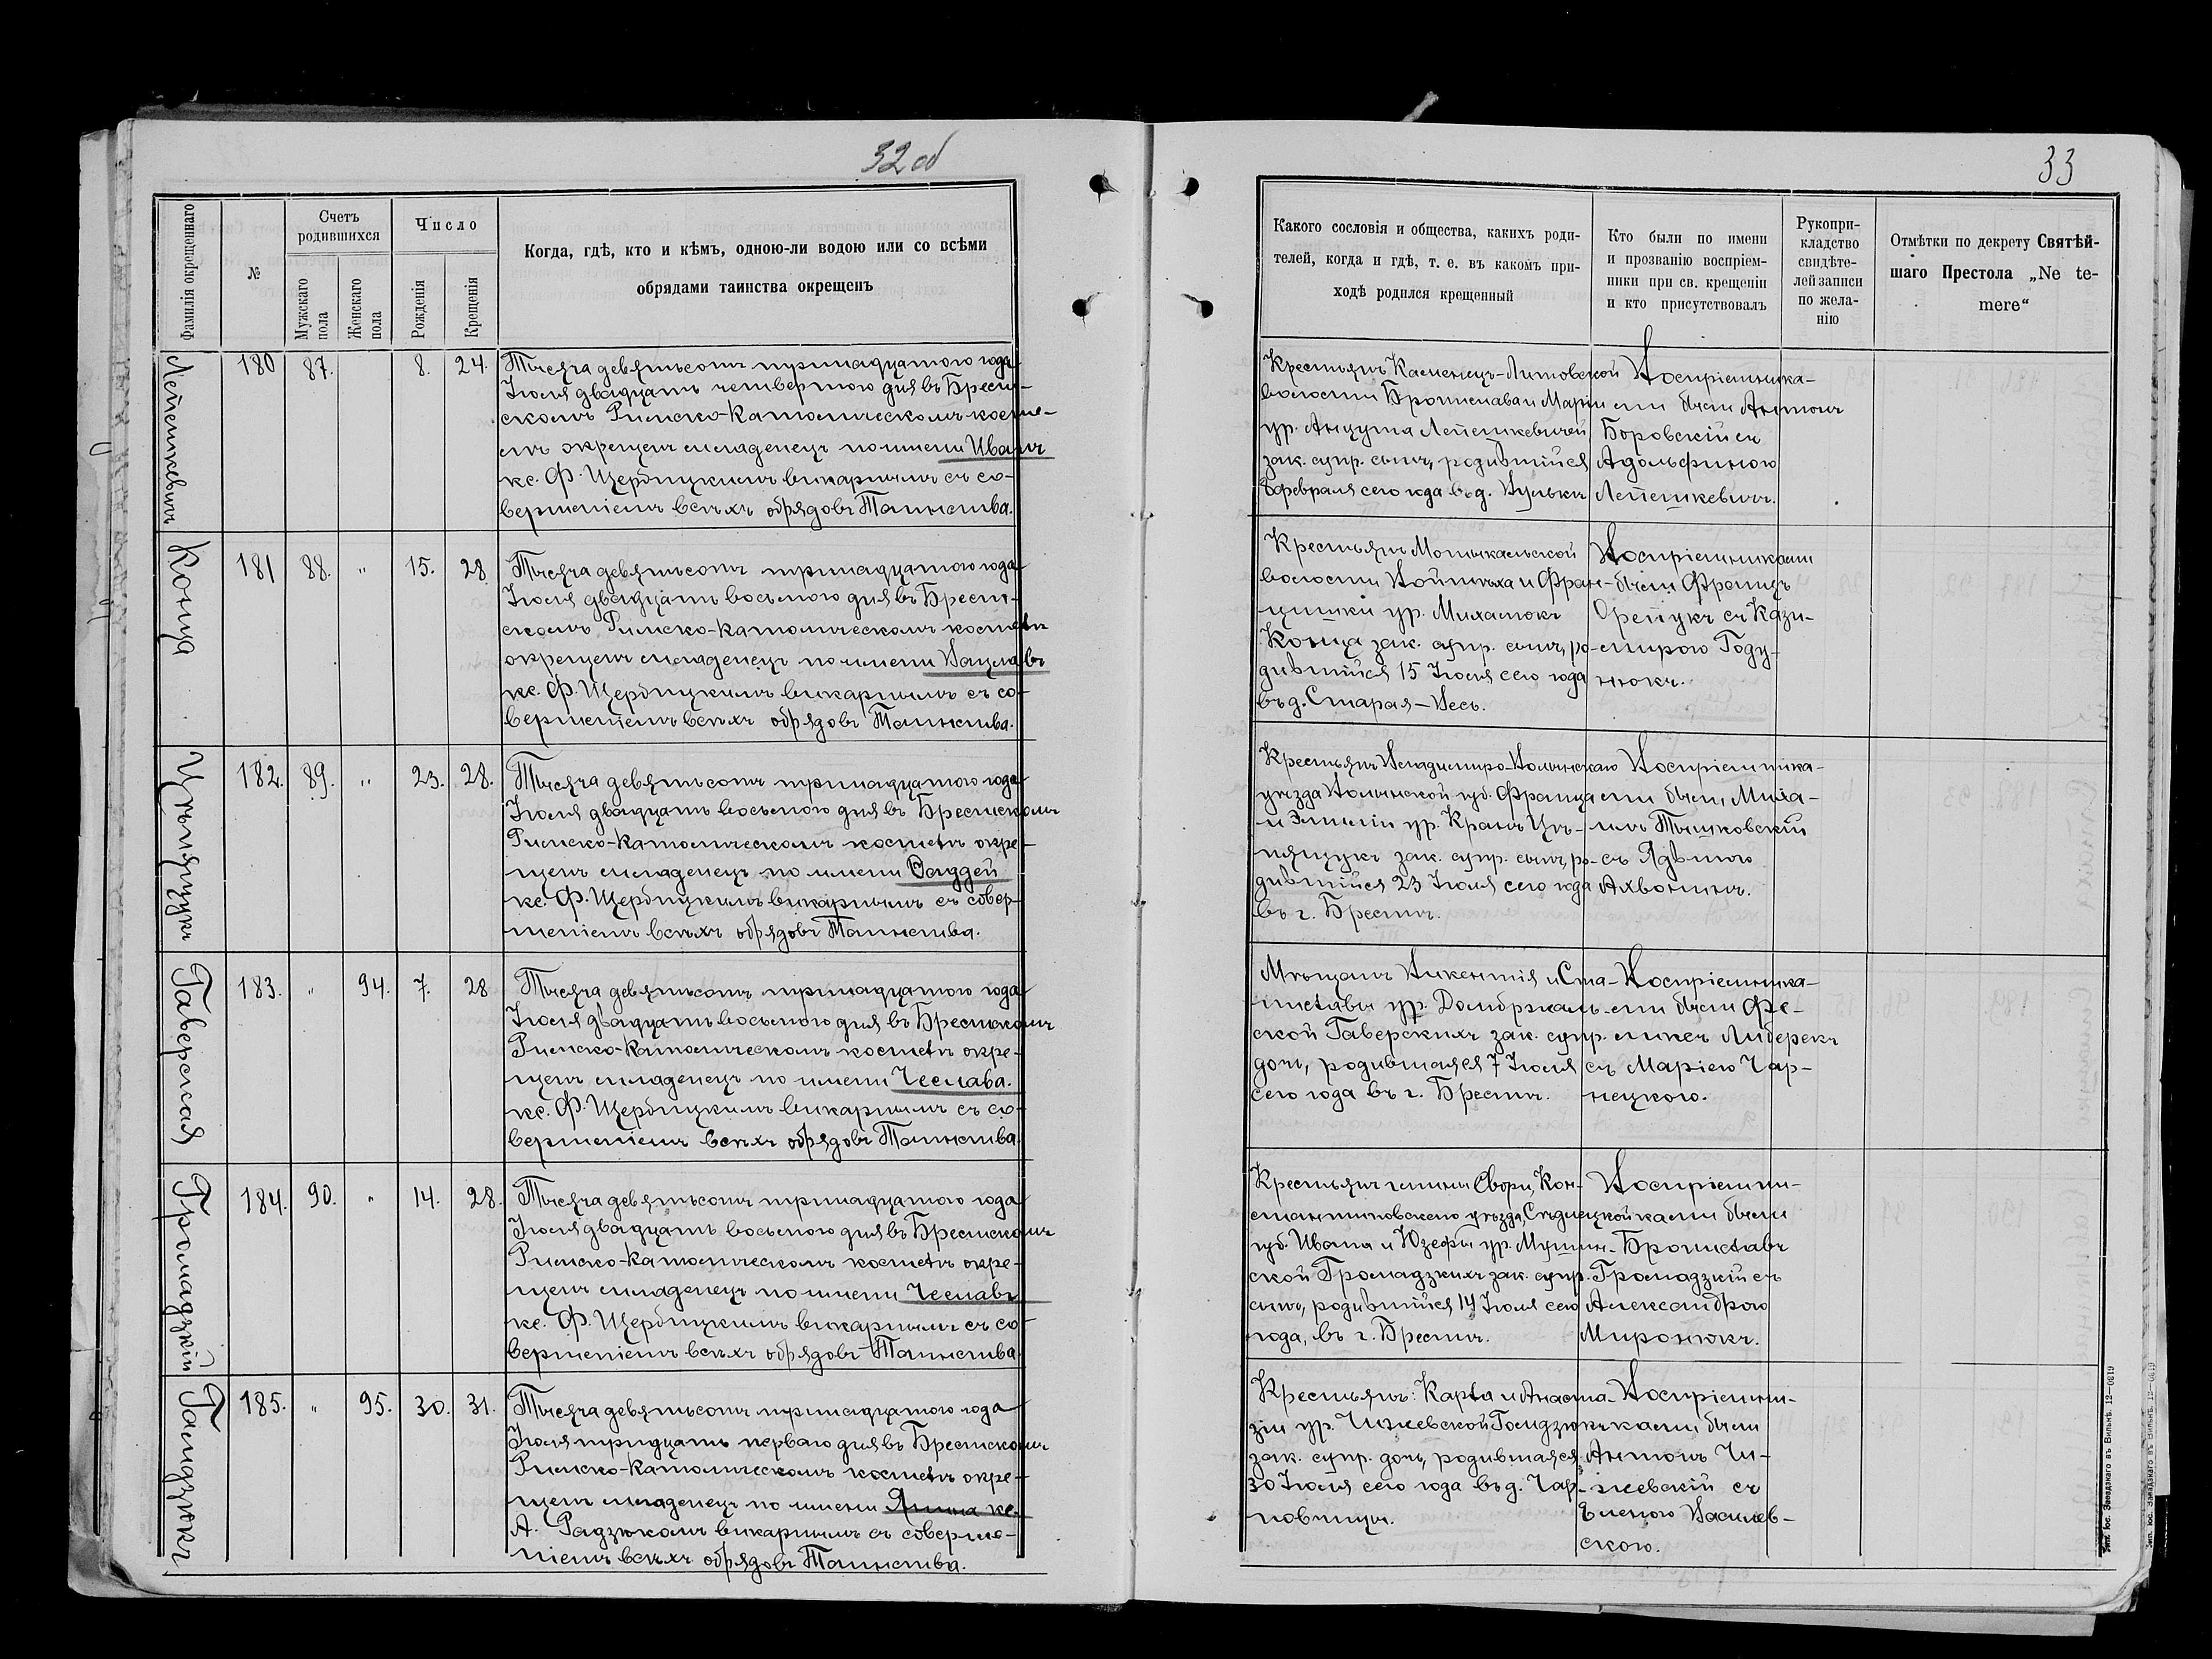 32 об
Фамилія окрещеннаго
№
Счетъ родившихся
Мужскаго пола
Женскаго пола
Число
Рожденія
Крещенія
Когда, гдѣ, кто и кѣмъ, одною-ли водою или со всѣми
обрядами таинства окрещенъ
Лепешкевичъ
180 87. 8. 24.
Тысяча девятьсотъ тринадцатого года
Іюля двадцать четвертого дня въ Брест-
скомъ Римско-Католическомъ косте-
лѣ окрещенъ младенецъ по имени Иванъ
кс. Ф. Щербицкимъ викарнымъ съ со-
вершеніемъ всѣхъ обрядовъ Таинства.
Конца
181 88. " 15. 28
Тысяча девятьсотъ тринадцатого года
Іюля двадцать восьмого дня въ Брест-
скомъ Римско-Католическомъ костелѣ
окрещенъ младенецъ по имени Вацлавъ
кс. Ф. Щербицкимъ викарнымъ съ со-
вершеніемъ всѣхъ обрядовъ Таинства.
182. 89. " 23. 28.
Тысяча девятьсотъ тринадцатого года
Іюля двадцать восьмого дня въ Брестскомъ
Римско-Католическомъ костелѣ окре-
щенъ младенецъ по имени Фаддей
кс. Ф. Щербицкимъ викарнымъ съ совер-
шеніемъ всѣхъ обрядовъ Таинства.
Гаверская
183. " 94. 7. 28
Тысяча девятьсотъ тринадцатого года
Іюля двадцать восьмого дня въ Брестскомъ
Римско-Католическомъ костелѣ окре-
щенъ младенецъ по имени Чеслава.
кс. Ф. Щербицкимъ викарнымъ съ со-
вершеніемъ всѣхъ обрядовъ Таинства.
Громадзкій
184. 90. " 14. 28.
Тысяча девятьсотъ тринадцатого года
Іюля двадцать восьмого дня въ Брестскомъ
Римско-Католическомъ костелѣ окре-
щенъ младенецъ по имени Чеславъ
кс. Ф. Щербицкимъ викарнымъ съ со-
вершеніемъ всѣхъ обрядовъ Таинства.
Гамдзюкъ
185. " 95. 30. 31.
Тысяча девятьсотъ тринадцатого года
Іюля тридцать перваго дня въ Брестскомъ
Римско-Католическомъ костелѣ окре-
щенъ младенецъ по имени Янина кс.
А. Радзюкомъ викарнымъ съ соверше-
ніемъ всѣхъ обрядовъ Таинства.
33
Какого сословія и общества, какихъ роди-
телей, когда и гдѣ, т. е. въ какомъ при-
ходѣ родился крещенный
Кто были по имени
и прозванію воспріем-
ники при св. крещеніи
и кто присутствовалъ
Рукопри-
кладство
свидѣте-
лей записи
по жела-
нію
Отмѣтки по декрету Святѣй-
шаго Престола „Ne te-
mere“
Крестьянъ Каменецъ-Литовской
волости Бронислава и Маріи
ур. Анцута Лепешкевичей
зак. супр. сынъ, родившійся
8 февраля сего года въ д.
Воспріемника-
ми были Антонъ
Боровскій съ
Адольфиною
Лепешкевичъ.
Крестьянъ Мотыкальской
волости Войтѣха и Фран-
цишки ур. Михалюкъ
Конца зак. супр. сынъ, ро-
дившійся 15 Іюля сего года
въ д. Старая-Весь.
Воспріемниками
были Францъ
Орепукъ съ Кази-
мирою Году-
нюкъ.
Крестьянъ Владиміро-Волынскаго
уѣзда Волынской губ. Франца
и Эмиліи ур. Кранъ Цѣ-
пящукъ зак. супр. сынъ, ро-
дившійся 23 Іюля сего года
въ г. Брестѣ.
Воспріемника-
ми были, Миха-
илъ Тышковскій
съ Ядвигою
Ахвонинъ.
Мѣщанъ Викентія и Ста-
ниславы ур. Домбржаль-
ской Гаверскихъ зак. супр.
дочь, родившаяся 7 Іюля
сего года въ г. Брестѣ.
Воспріемника-
ми были Фе-
ликсъ Либерекъ
съ Маріею Чар-
нецкою.
Крестьянъ гмины Свори, Кон-
стантиновскаго уѣзда, Сѣдлецкой
губ. Ивана и Юзефы ур. Мушин-
ской Громадзкихъ зак. супр.
сынъ, родившійся 14 Іюля сего
года, въ г. Брестѣ.
Воспріемни-
ками были
Брониславъ
Громадзкій съ
Александрою
Миронюкъ.
Крестьянъ: Карла и Анаста-
зіи ур. Чижевской Гамдзюкъ
зак. супр. дочь, родившаяся
30 Іюля сего года въ д. Чар-
новчицы.
Воспріемни-
ками, были
Антонъ Чи-
жевскій съ
Еленою Василев-
скою.
Тип. Іос. Завадзкаго въ Вильнѣ. 12—0619